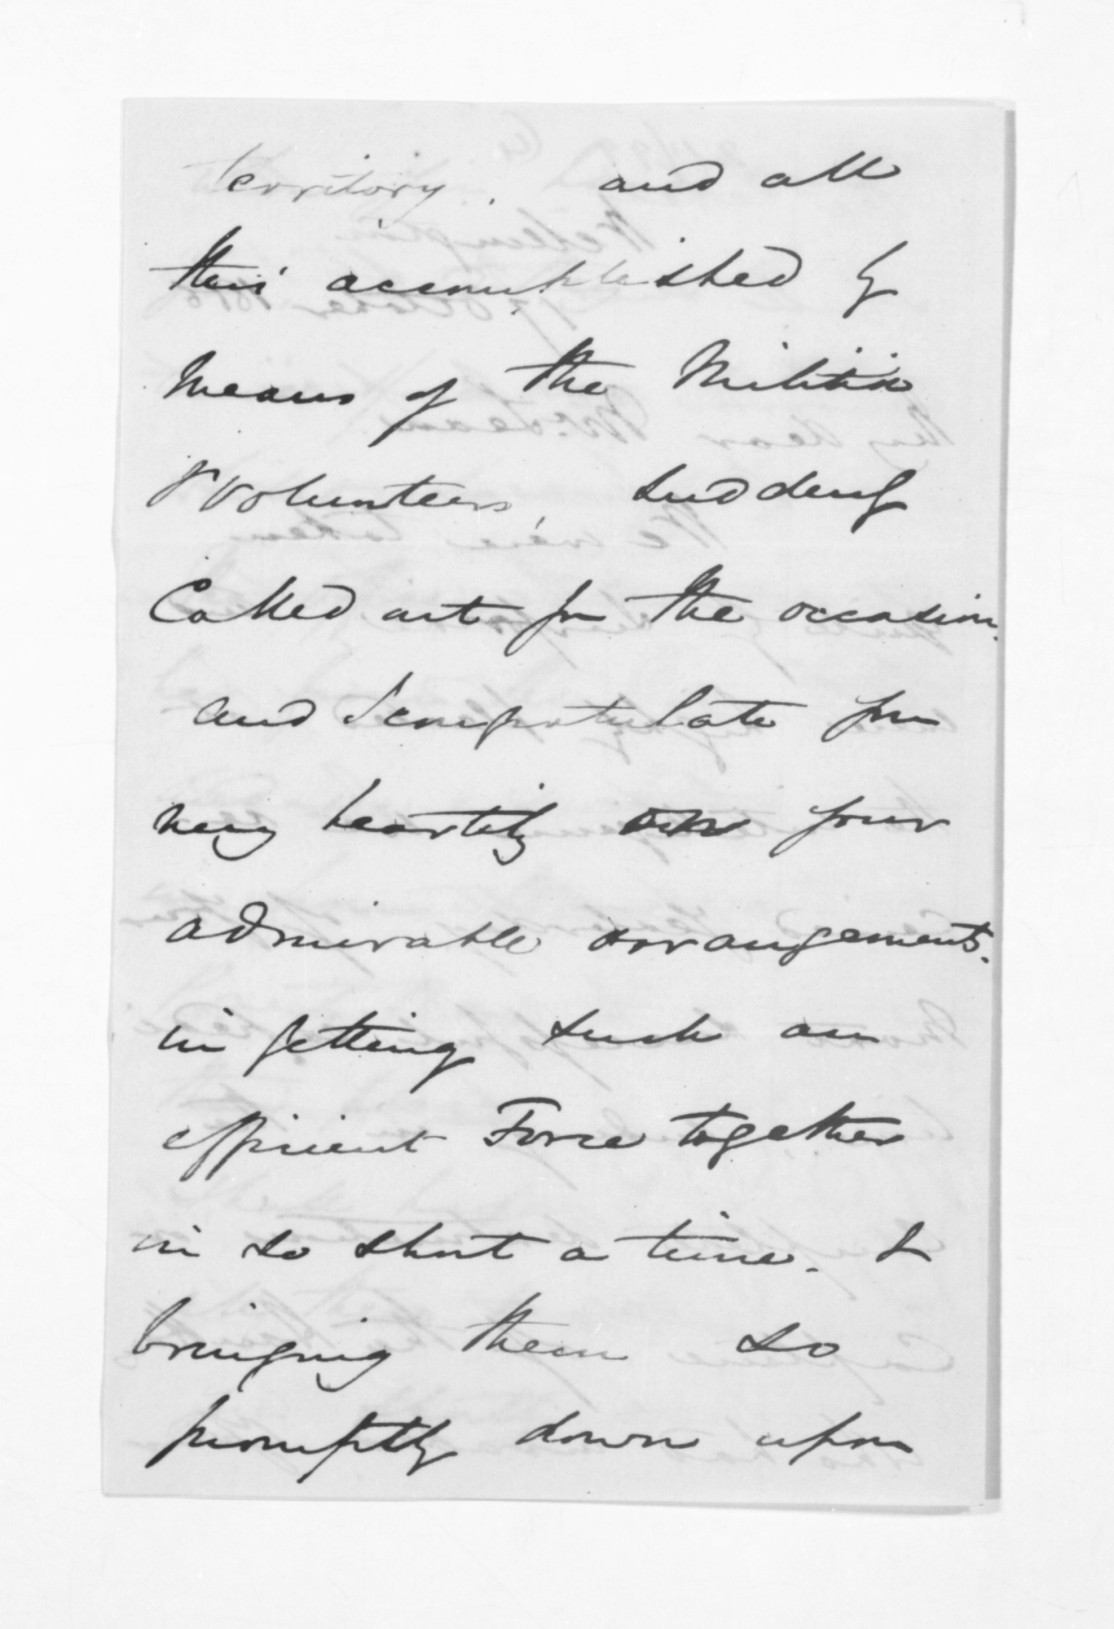 territory, and all
this accomplished by
means of the Militia
& Volunteers, suddenly
Called out for the occasion.
and I congratulate you
very heartily on your
admirable arrangements.
in getting such an
efficient Force together
in so short a time. &
bringing them so
promptly down upon